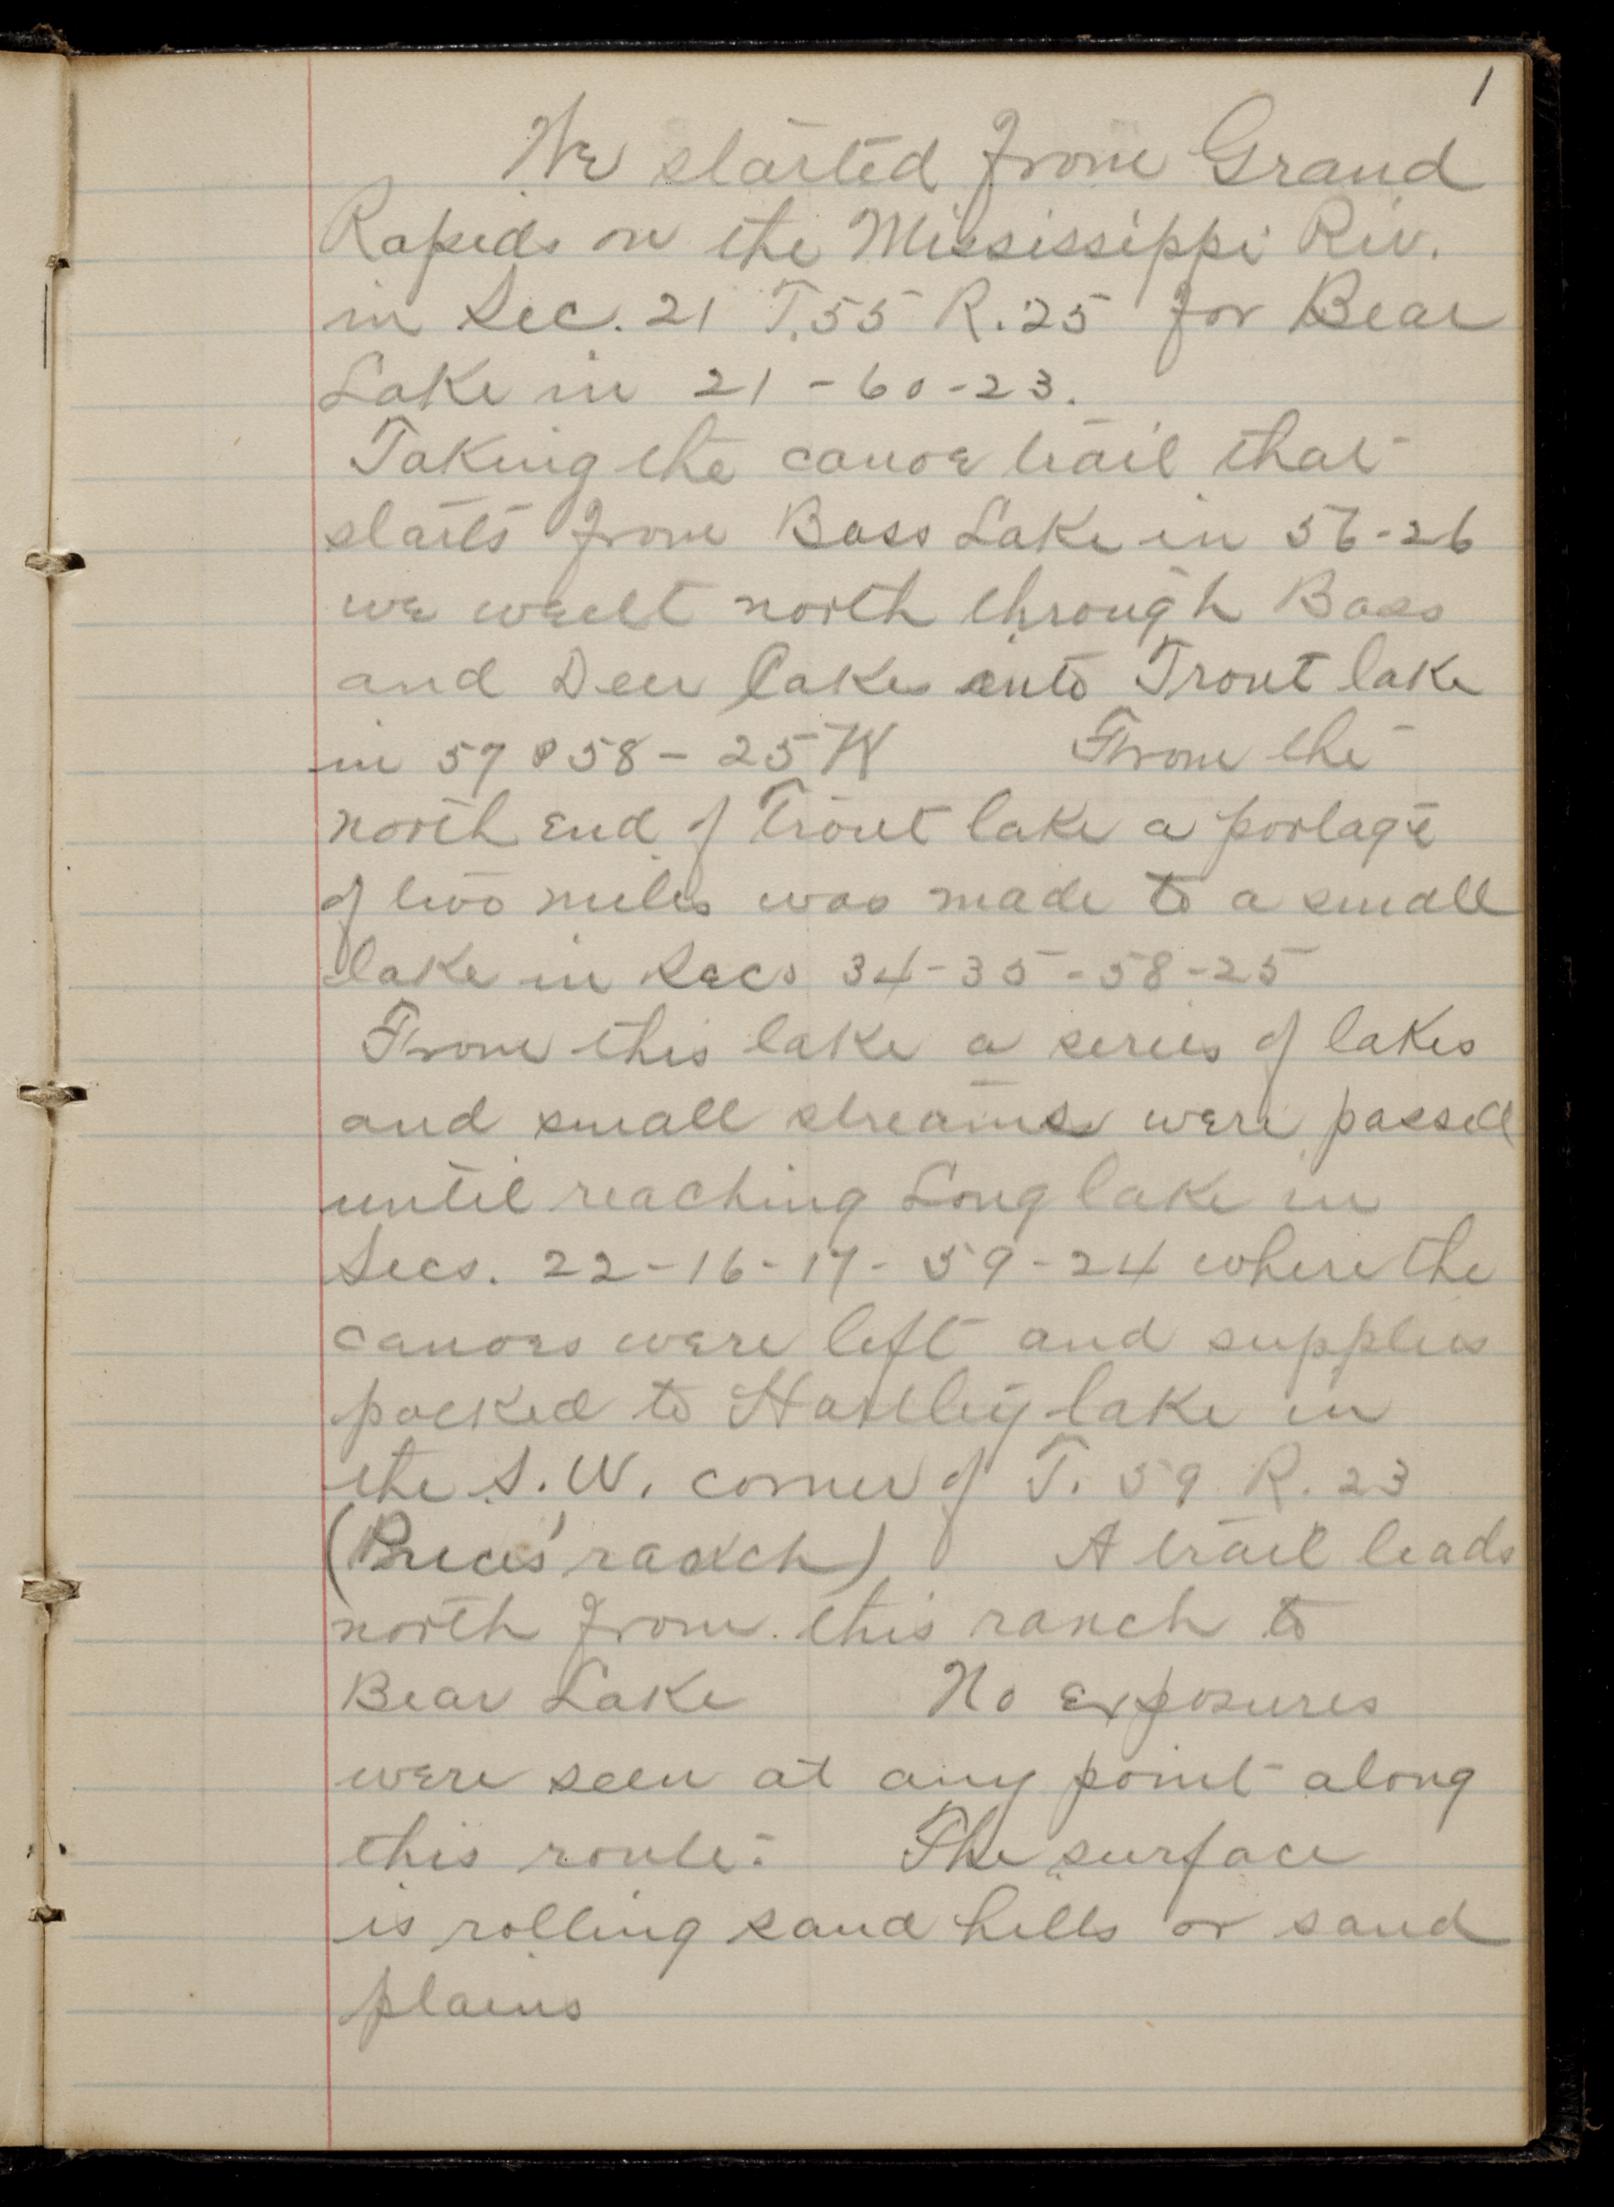 1
We started from Grand
Rapids on the Mississippi Riv.
in Sec. 21 T.55 R.25 for Bear
Lake in 21-60-23.
Taking the canoe trail that
starts from Bass Lake in 56-26
we went north through Bass
and Deer lakes into Trout lake
in 57 & 58 - 25 W From the
north end of Trout lake a portage
of two miles was made to a small
lake in Secs 34-35-58-25
From this lake a series of lakes
and small streams were passed
until reaching Long lake in
Secs. 22-16-17-59-24 where the
canoes were left and supplies
packed to Hartley lake in
the S.W. corner of T. 59 R. 23
(Prices' ranch) A trail leads
north from this ranch to
Bear Lake No exposures
were seen at any point along
this route. The surface
is rolling sand hills or sand
plains